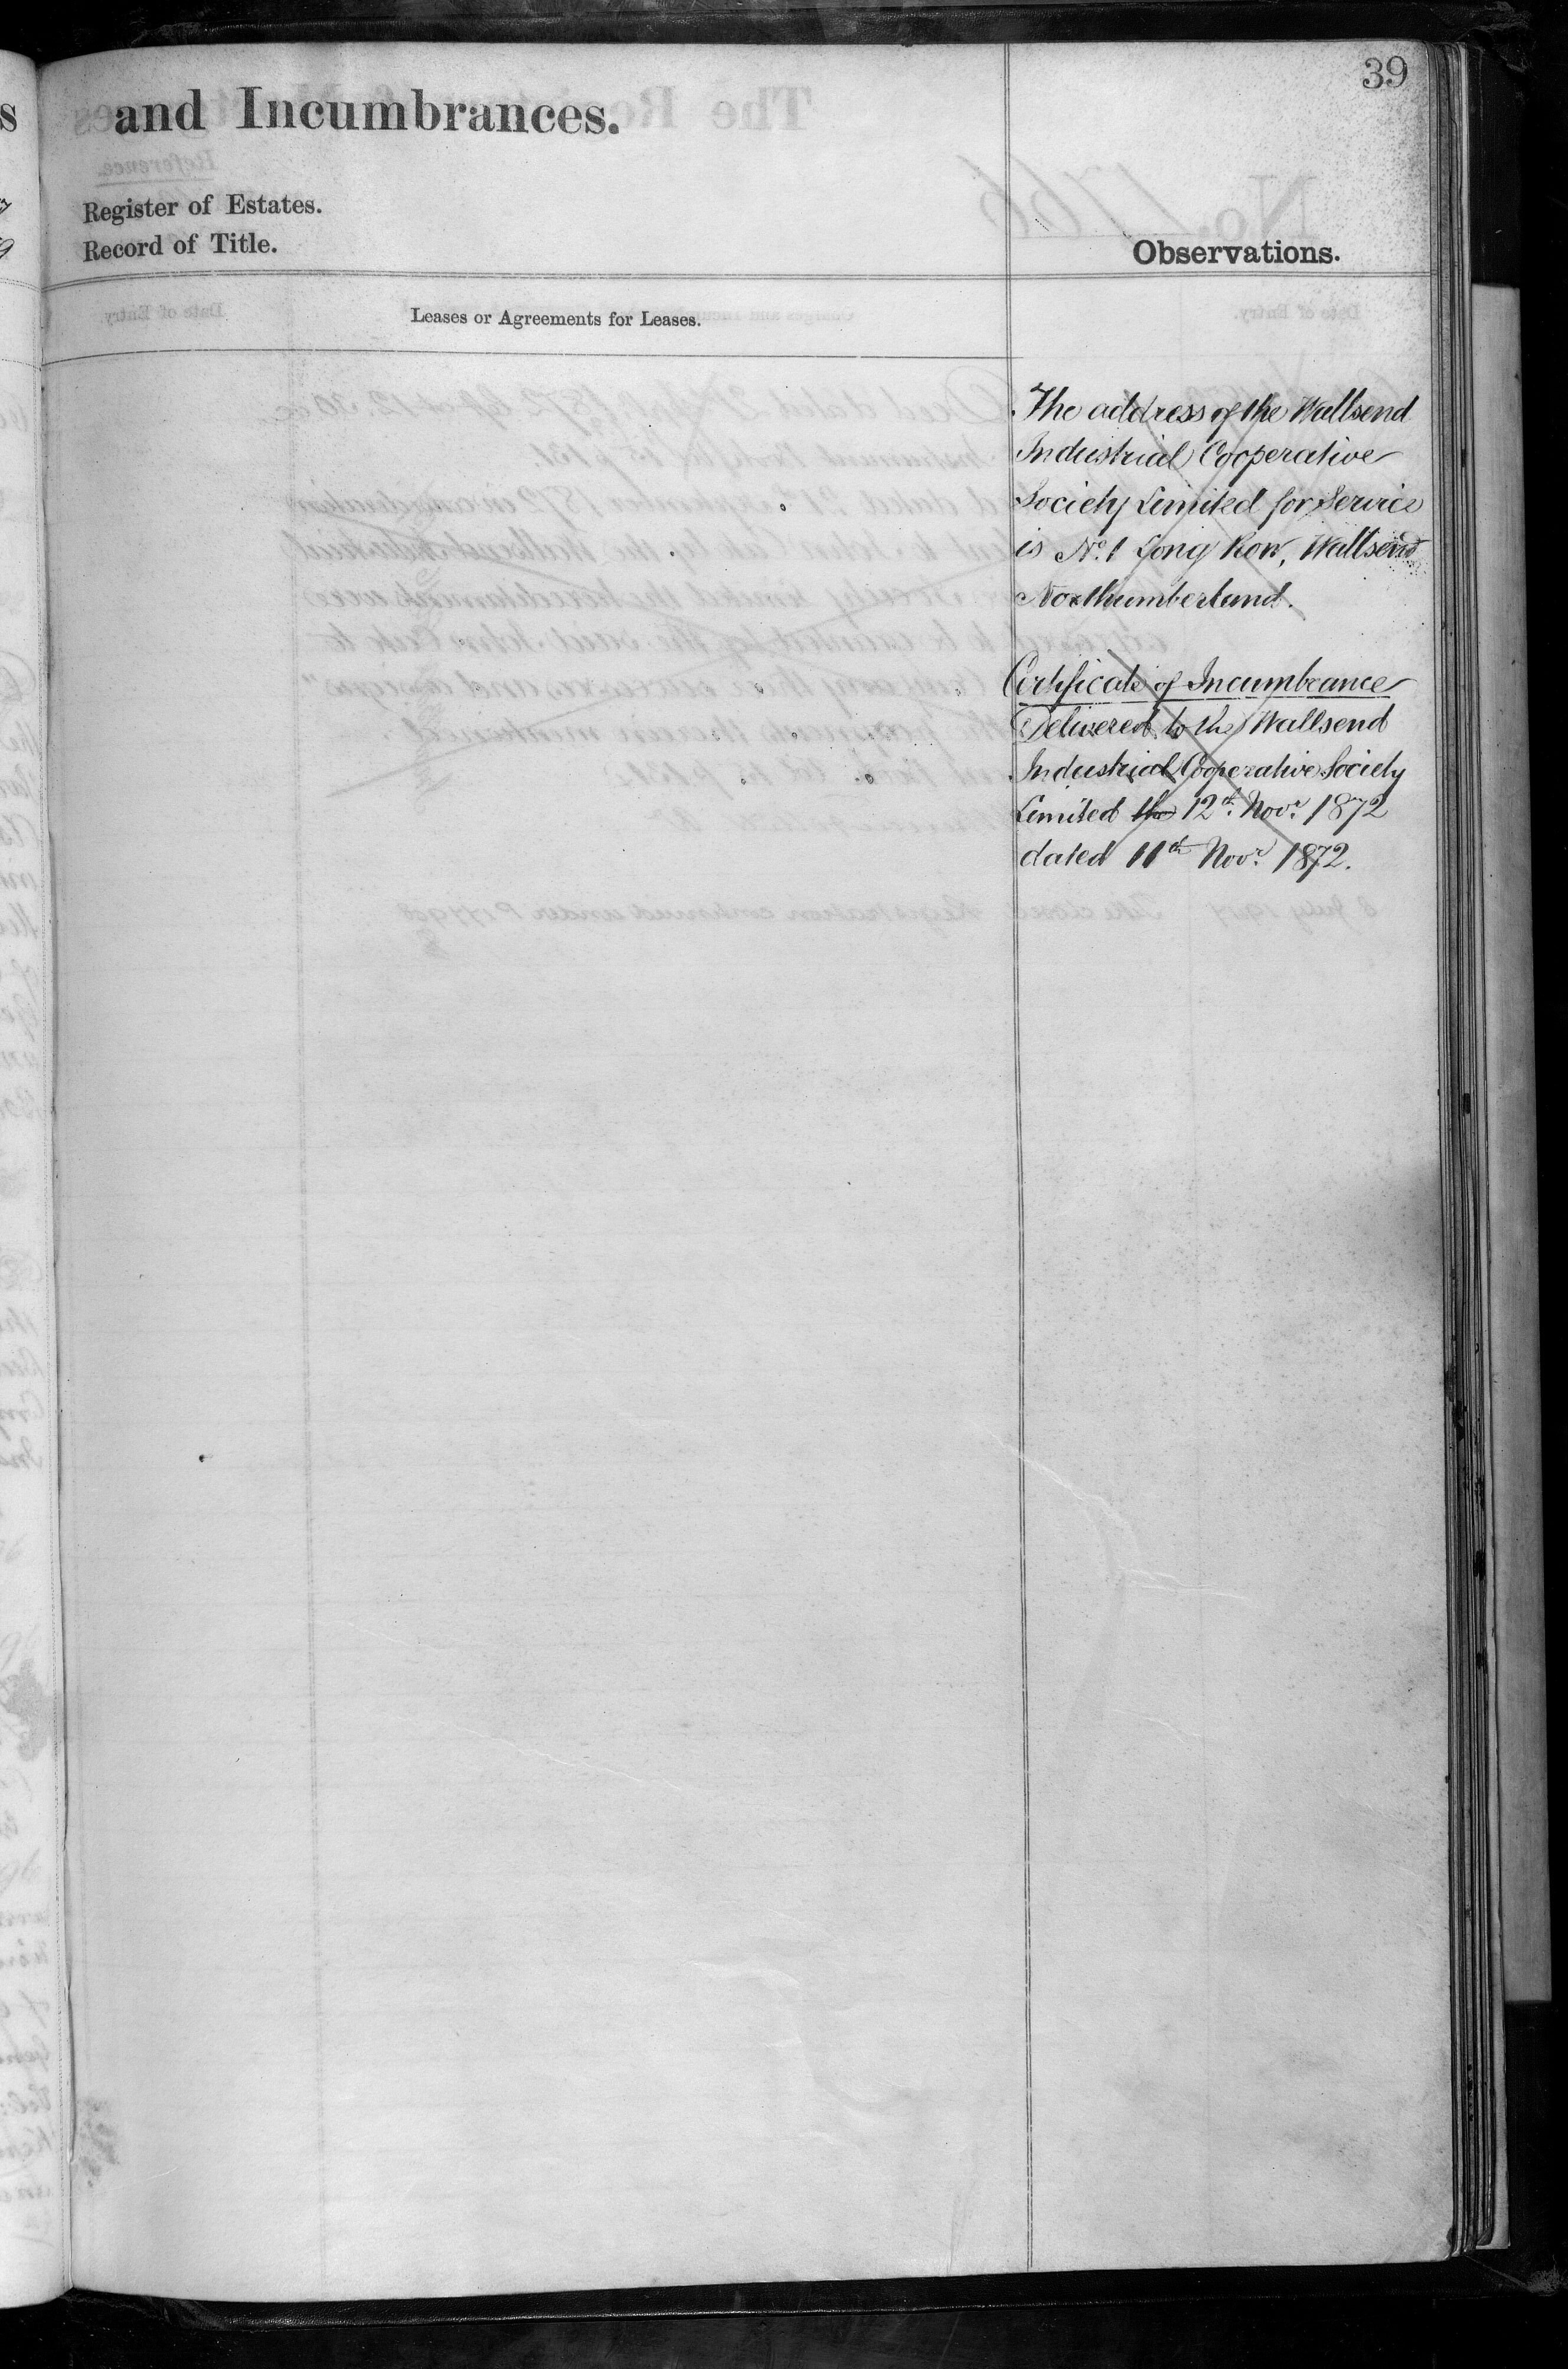 39
and Incumbrances.
Register of Estates.
Record of Title.
Observations.
Leases or Agreements for Leases.
The address of the Wallsend
Industrial Cooperative
Society Limited for Service
is No. 1 Long Row, Wallsend
Northumberland.
Certificate of Incumbrance
Delivered to the Wallsend
Industrial Cooperative Society
Limited the 12th Novr 1872
dated 11th Novr 1872.